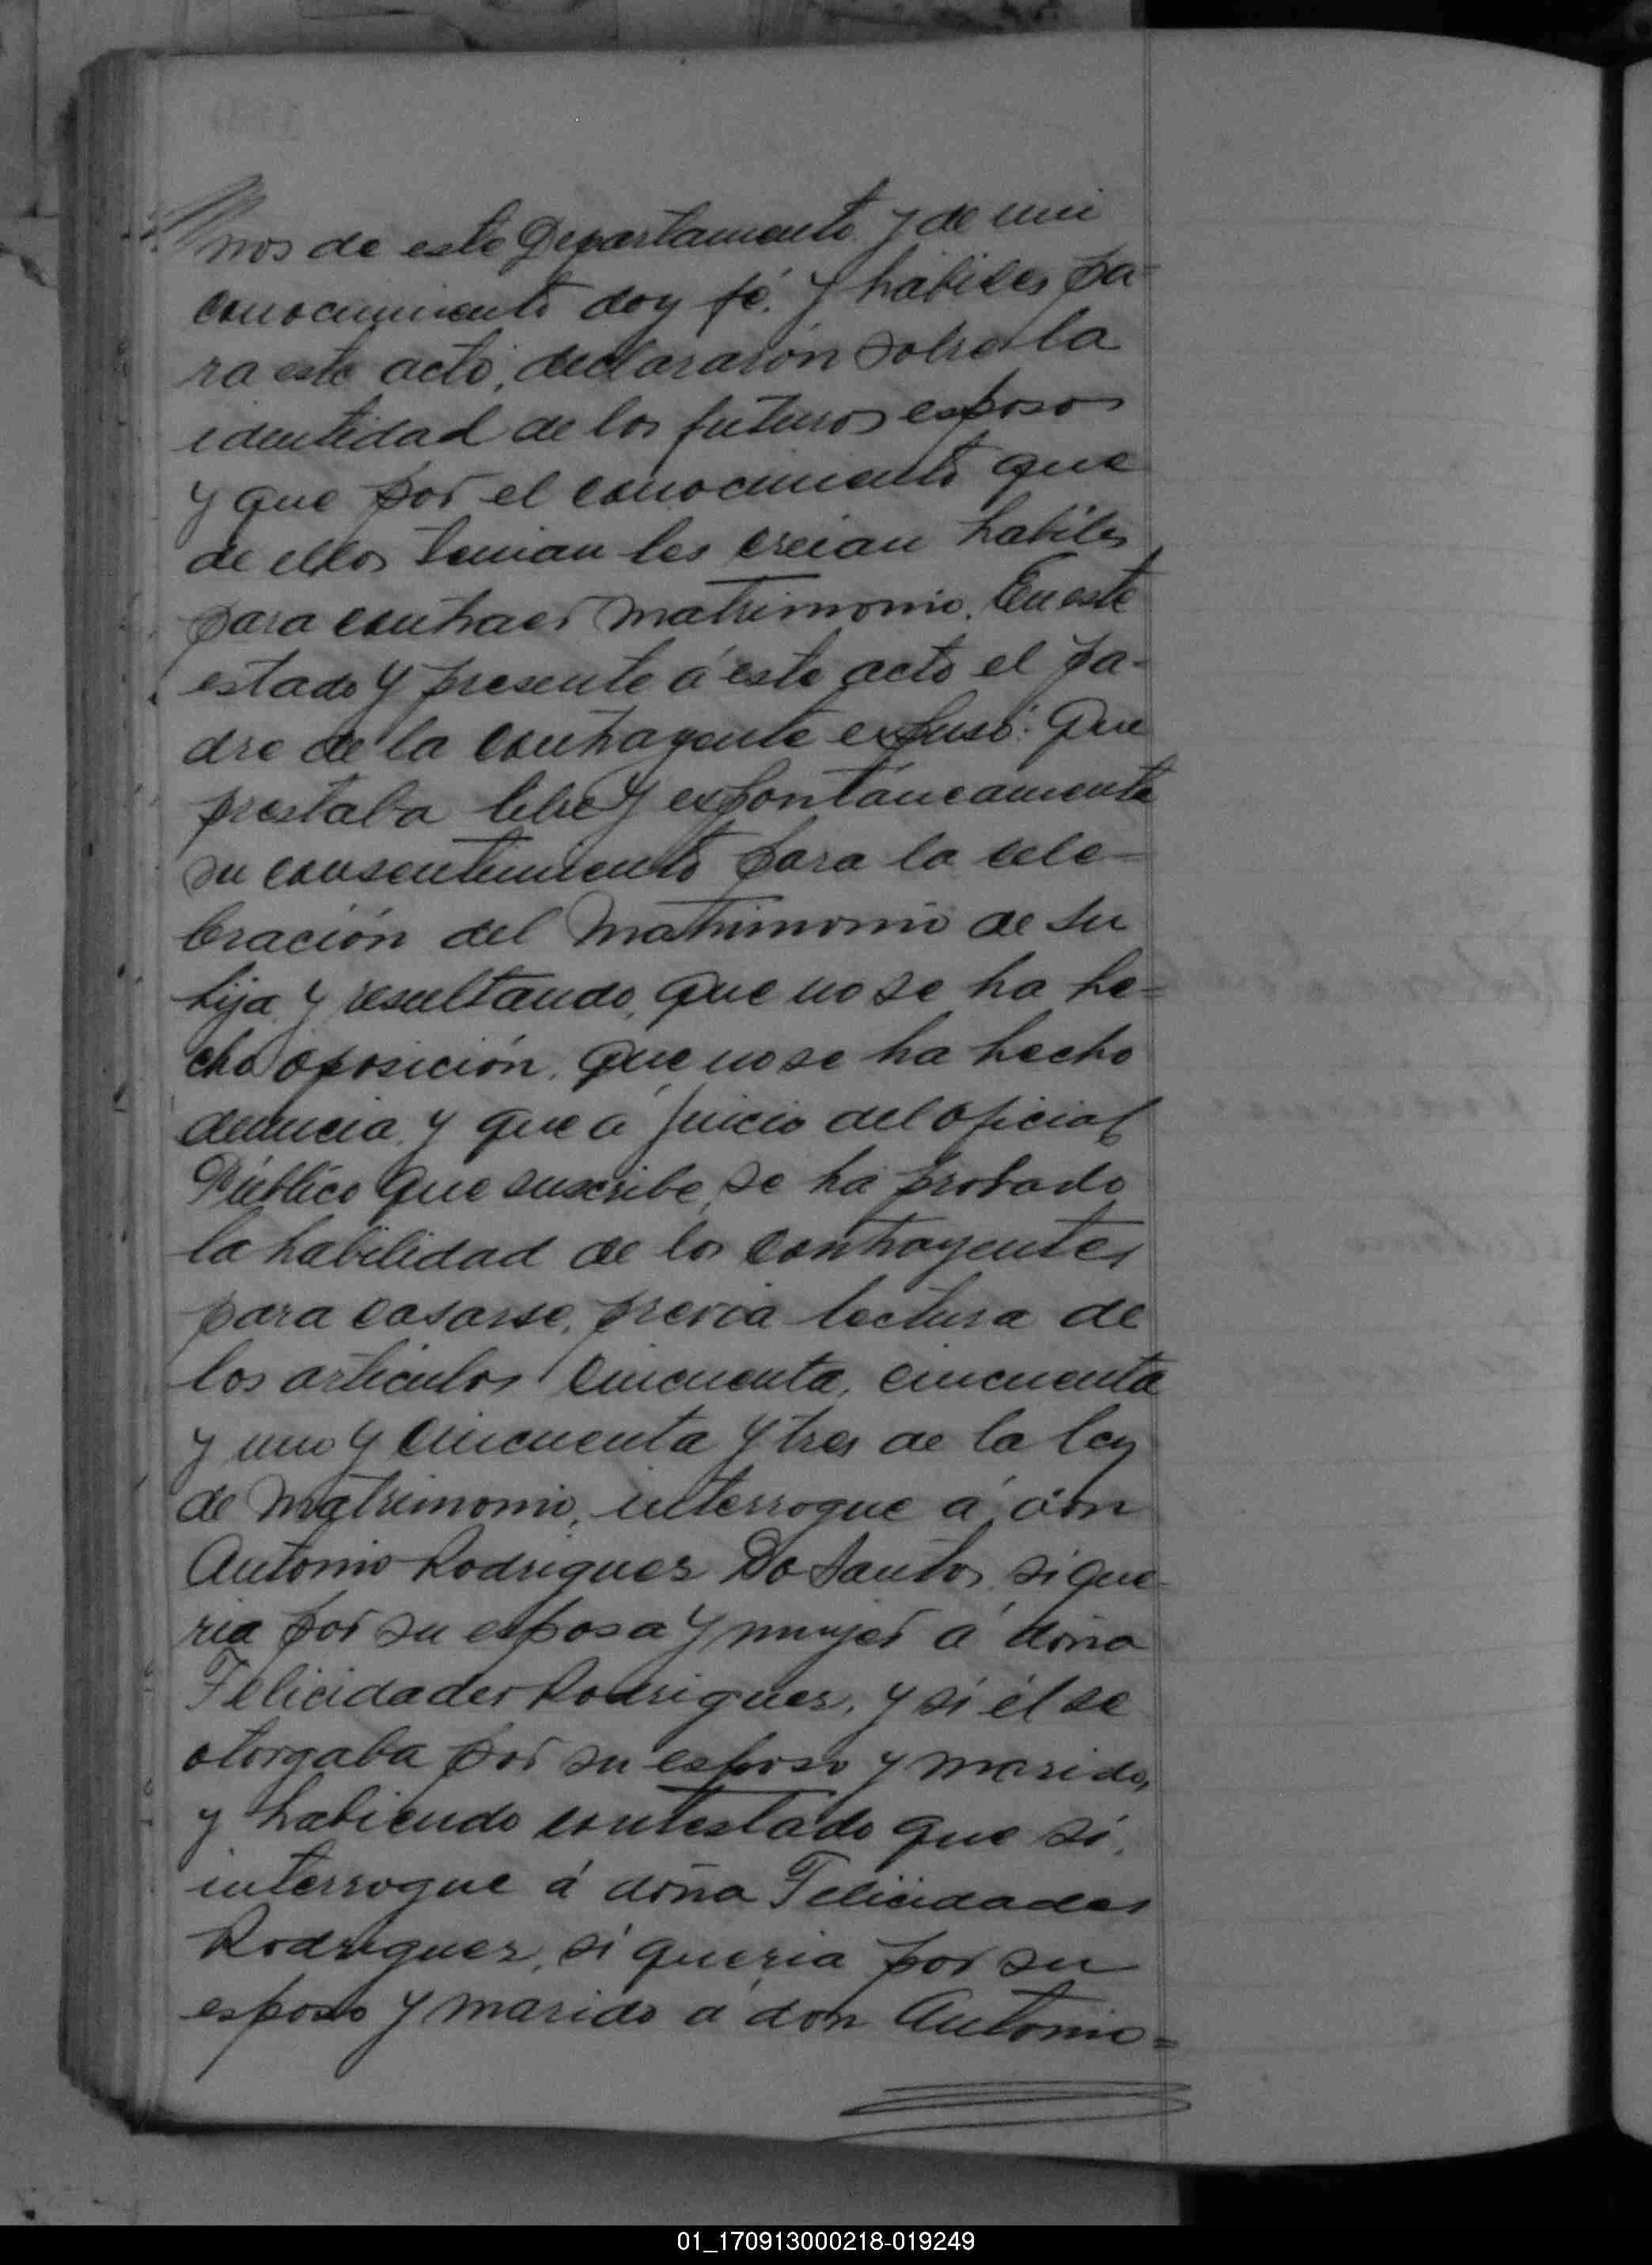 nos de este Departamento y de mi
conocimiento doy fé. Y hábiles pa-
ra este acto, declararón sobre la
identidad de los futuros esposos
y que por el conocimiento que
de ellos tenian les creian habiles
para contraer matrimonio. En este
estado y presente á este acto el pa-
dre de la contrayente expuso: Que
prestaba libre y expontáneamente
su consentimiento para la cele-
bración del matrimonio de su
hija y resultando, que no se ha he-
cho oposición, que no se ha hecho
denuncia y que a juicio del oficial
Público que suscribe, se ha probado
la habilidad de los contrayentes
para casarse, previa lectura de
los articulos cincuenta, cincuenta
y uno y cincuenta y tres de la ley
de matrimonio, interrogue á don
Antonio Rodriguez Do Santos, si que-
ria por su esposa y mujer á doña
Felicidades Rodriguez, y si él se
otorgaba por su esposo y marido,
y habiendo contestado que sí,
interrogue á doña Felicidades
Rodriguez, si queria por su
esposo y marido á don Antonio=
01_170913000218-019249